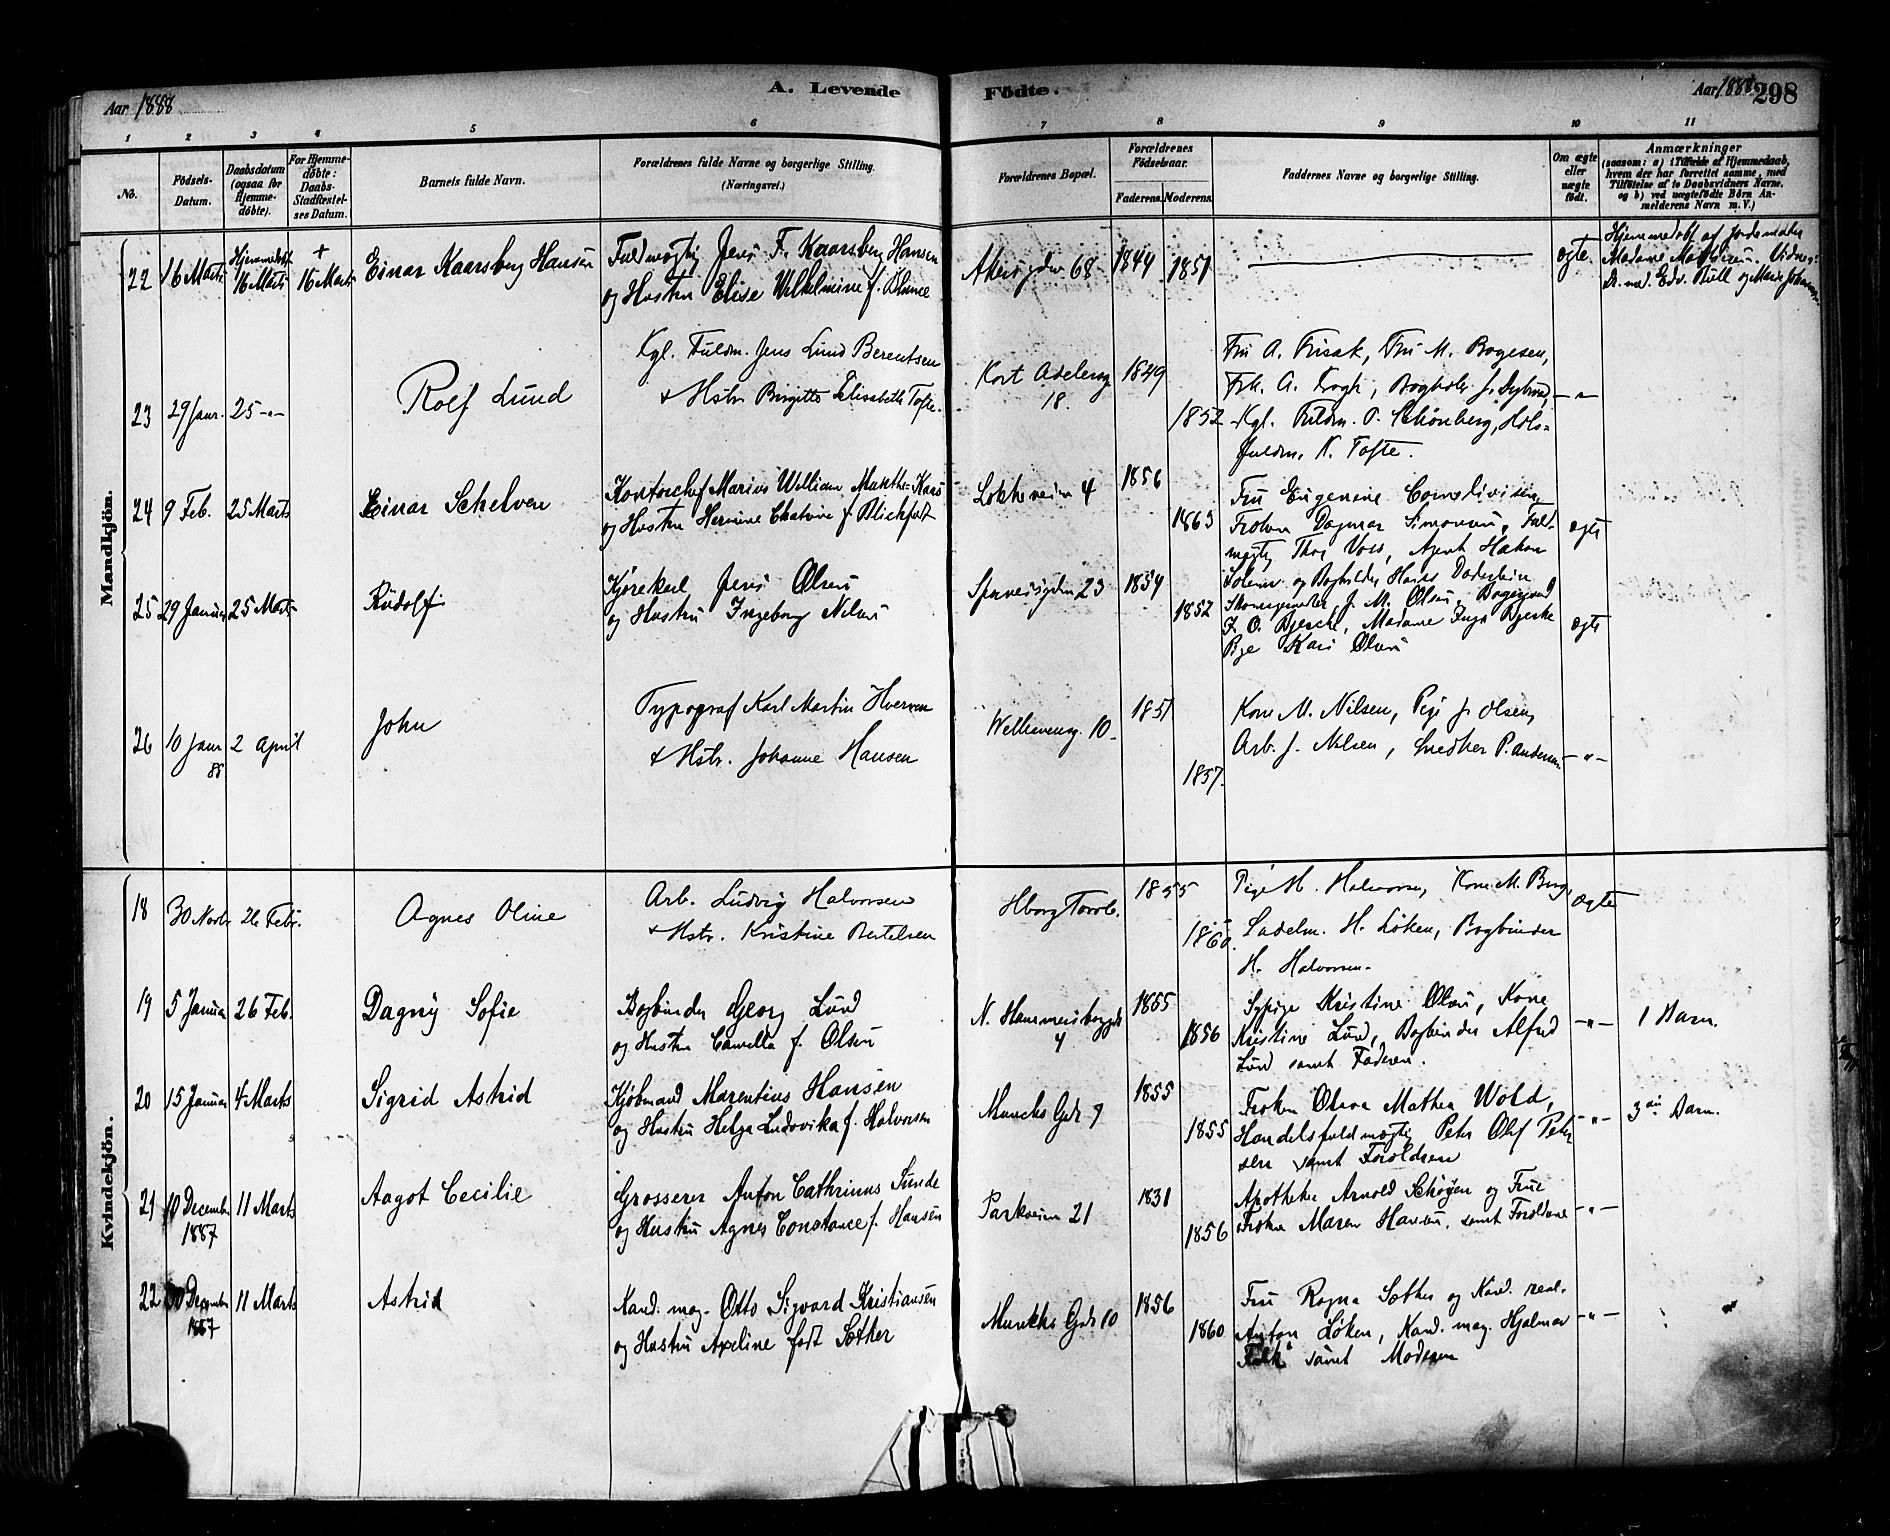 Aar 1888
A. Levende
Fødte.
Aar 1888
298
1 2 3 4 5 6 7 8 9 10 11
No.
Fødsels-Datum.
Daabsdatum (ogsaa for Hjemme-døbte).
For Hjemme-døbte: Daabs-Stadfæstel-ses Datum.
Barnets fulde Navn.
Forældrenes fulde Navne og borgerlige Stilling. (Næringsvei.)
Forældrenes Bopæl.
Forældrenes Fødselsaar.
Faderens. Moderens.
Faddernes Navne og borgerlige Stilling.
Om ægte eller uægte født.
Anmærkninger
(saasom: a) i Tilfælde af Hjemmedaab, hvem der har forrettet samme, med Tilføielse af to Daabsvidners Navne, og b) ved uægtefødte Børn An-melderens Navn m. V.)
Mandkjön.
22 16 Marts Hjemmedøbt 16 Marts + 16 Marts Einar Kaarsberg Hansen
Fuldmægtig Jens F. Kaarsberg Hansen
og Hustru Elise Wilhelmine f.
Akersgden 68 1844 1851 ægte
Hjemmedøbt af Jordemoder
Madame Vidner:
Dr. med. Edv. Bull og Marie
23 29 Janr. 25 -"- Rolf Lund
Kgl. Fuldm. Jens Lund Berentsen
+ Hstr. Birgitte Elisabeth Tofte.
Kort Adelersg. 18. 1849 1852
Fru A. Frisak, Fru M. Bogesen,
Frk. A. Krogh, Bogholder J.
Kgl. Fuldm. O. Schönberg,
fuldm. K. Tofte.
-"-
24 9 Feb. 25 Marts Einar Schelven
Kontorchef Marius William Munthe-Kaas
og Hustru Hermine Chatrine f. Blickfeldt
Løkkeveien 4 1856 1863
Fru Eugenine
Frøken Dagmar Simonsen, Fuld-
mægtig Thor Voss, Agent Hakon
og Bogholder Hans
ægte
25 29 Januar 25 Marts Rudolf
Kjørekarl Jens Olsen
og Hustru Ingeborg Nilsen
Sporveisgden 23 1854 1852
Skomagermester J. M. Olsen,
F. O. Bjerche, Madame Inga Bjerke
Pige Kari Olsen
ægte
26 10 Janr 88 2 April John
Typograf Karl Martin Hveven
+ Hstr. Johanne Hansen
Welhavensg. 10. 1851 1857.
Kone M. Nilsen, Pige J. Olsen,
Arb. J. Nilsen, Snedker P. Andersen
-"-
Kvindekjön.
18 30 Novbr. 26 Febr. Agnes Oline
Arb. Ludvig Halvorsen
+ Hstr. Kristine Bertelsen
Hborg Torvb. 1855 1860.
Pige H. Halvorsen, Kone M. Berg,
Sadelm. H. Løken, Bogbinder
H. Halvorsen.
ægte
19 5 Januar 26 Feb. Dagny Sofie
Bogbinder Georg Lund
og Hustru Camilla f. Olsen
N. Hammersborggd 4 1855 1856
Sypige Kristine Olsen, Kone
Kristine Lund, Bogbinder Alfred
Lund samt Faderen.
-"- 1 Barn.
20 15 Januar 4 Marts Sigrid Astrid
Kjøbmand Marentius Hansen
og Hustru Helga Ludovika f. Halvorsen
Munchs Gde 7 1855 1855
Frøken Olava Mathea Wold,
Handelsfuldmægtig Peter Olaf Peter-
sen samt Forældrene
-"- 3die Barn.
21 10 December 1887 11 Marts Aagot Cecilie
Grosserer Anton Cathrinus Sunde
og Hustru Agnes Constance f. Hansen
Parkveien 21 1831 1856
Apotheker Arnold Schøyen og Frue
Frøken Maren Hansen, samt Forældrene
-"-
22 30 December 1887 11 Marts Astrid
Kand. mag. Otto Sigvard Kristiansen
og Hustru Axeline født Sæther
Munchs Gde 10 1856 1860
Fru Ragna Sæther og Kand. real.
Anton Løken, Kand. mag. Hjalmar
Falk samt Moderen
-"-